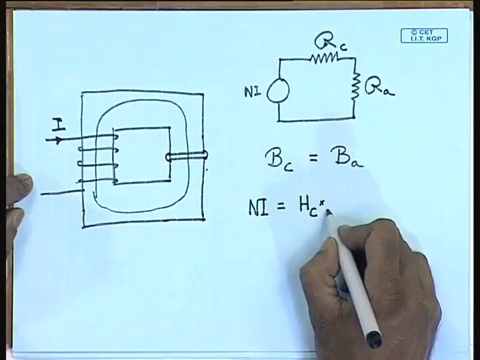 © CET
I.I.T. KGP
R_c
I
NI
R_a
B_c = B_a
NI = H_c